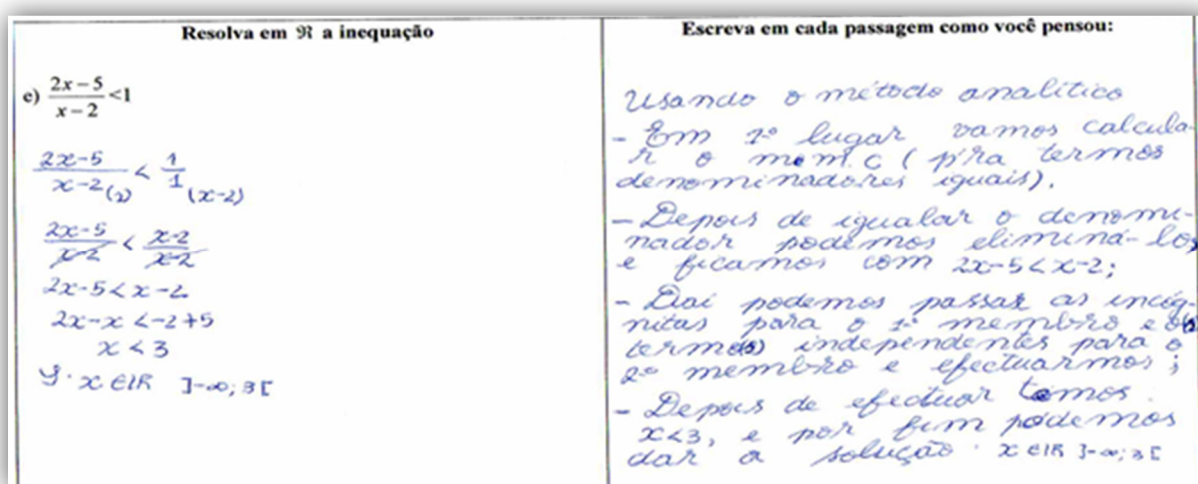 Resolva em ℜ a inequação
e) \frac{2x-5}{x-2} <1
\frac{2x-5}{x-2}_{(1)} < \frac{1}{1}_{(x-2)}
\frac{2x-5}{x-2} < \frac{x-2}{x-2}
2x-5<x-2
2x-x <-2+5
x < 3
S. x ∈ IR ]-∞; 3[
Escreva em cada passagem como você pensou:
Usando o método analítico
- Em 1º lugar vamos calcula-
r o m.m.c ( p'ra termos
denominadores iguais).
- Depois de igualar o denomi-
nador podemos eliminá-los,
e ficamos com 2x-5<x-2;
- Daí podemos passar as incóg-
nitas para o 1º membro e os
termos independentes para o
2º membro e efectuarmos ;
- Depois de efectuar temos.
x<3, e por fim podemos
dar a solução . x ∈ IR ]-∞; 3[